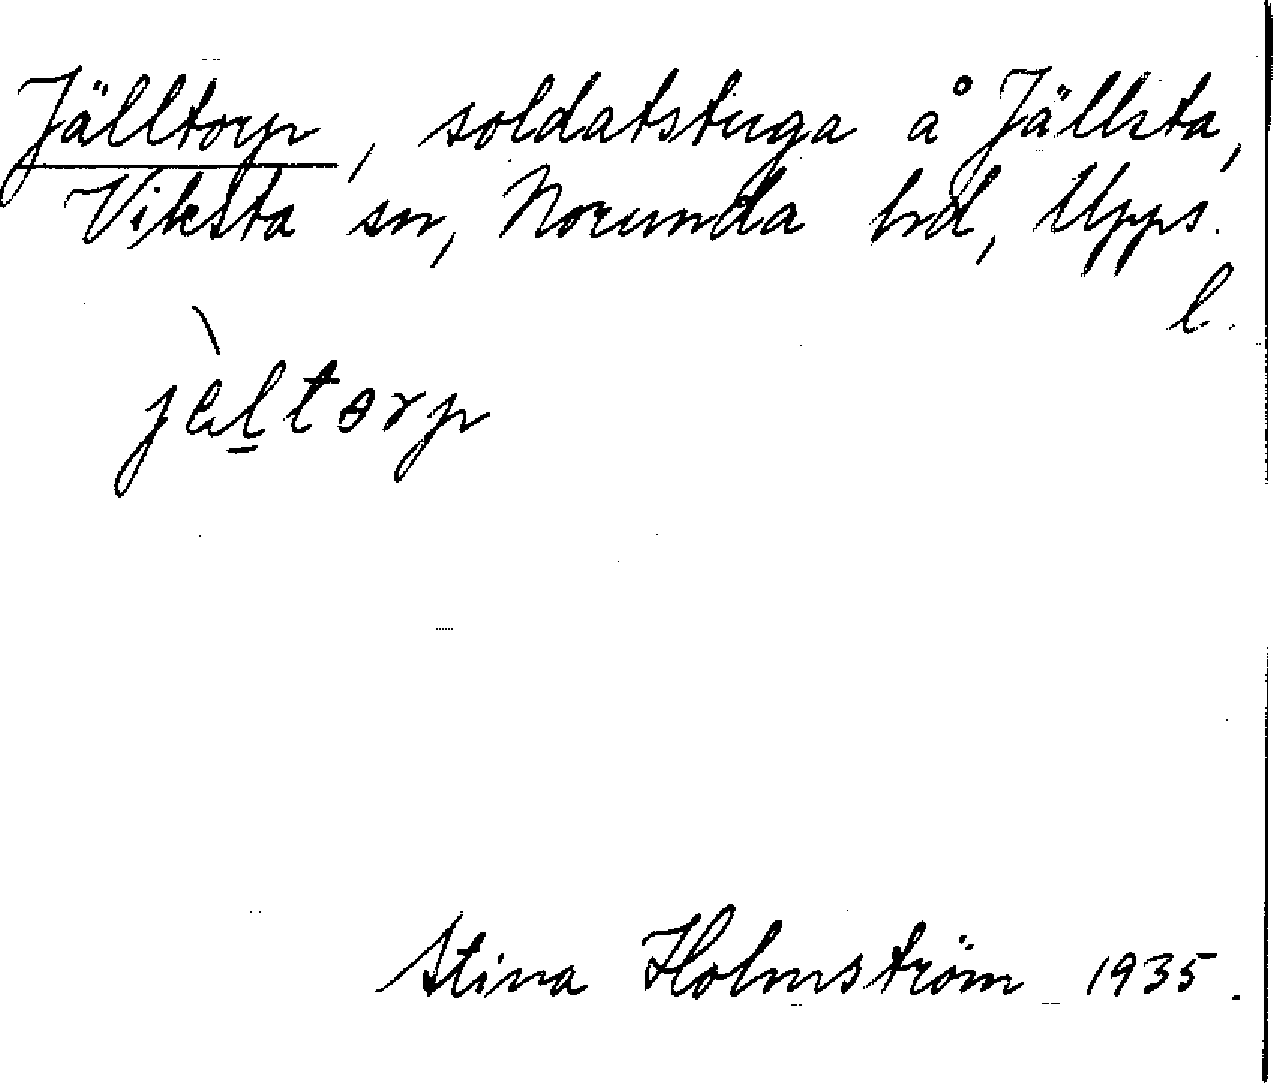 Jälltorp, soldatstuga å Jällsta,
Viksta sn, Norunda hd, Upps.
l.
jèl̲tɵrp
Stina Holmström 1935.